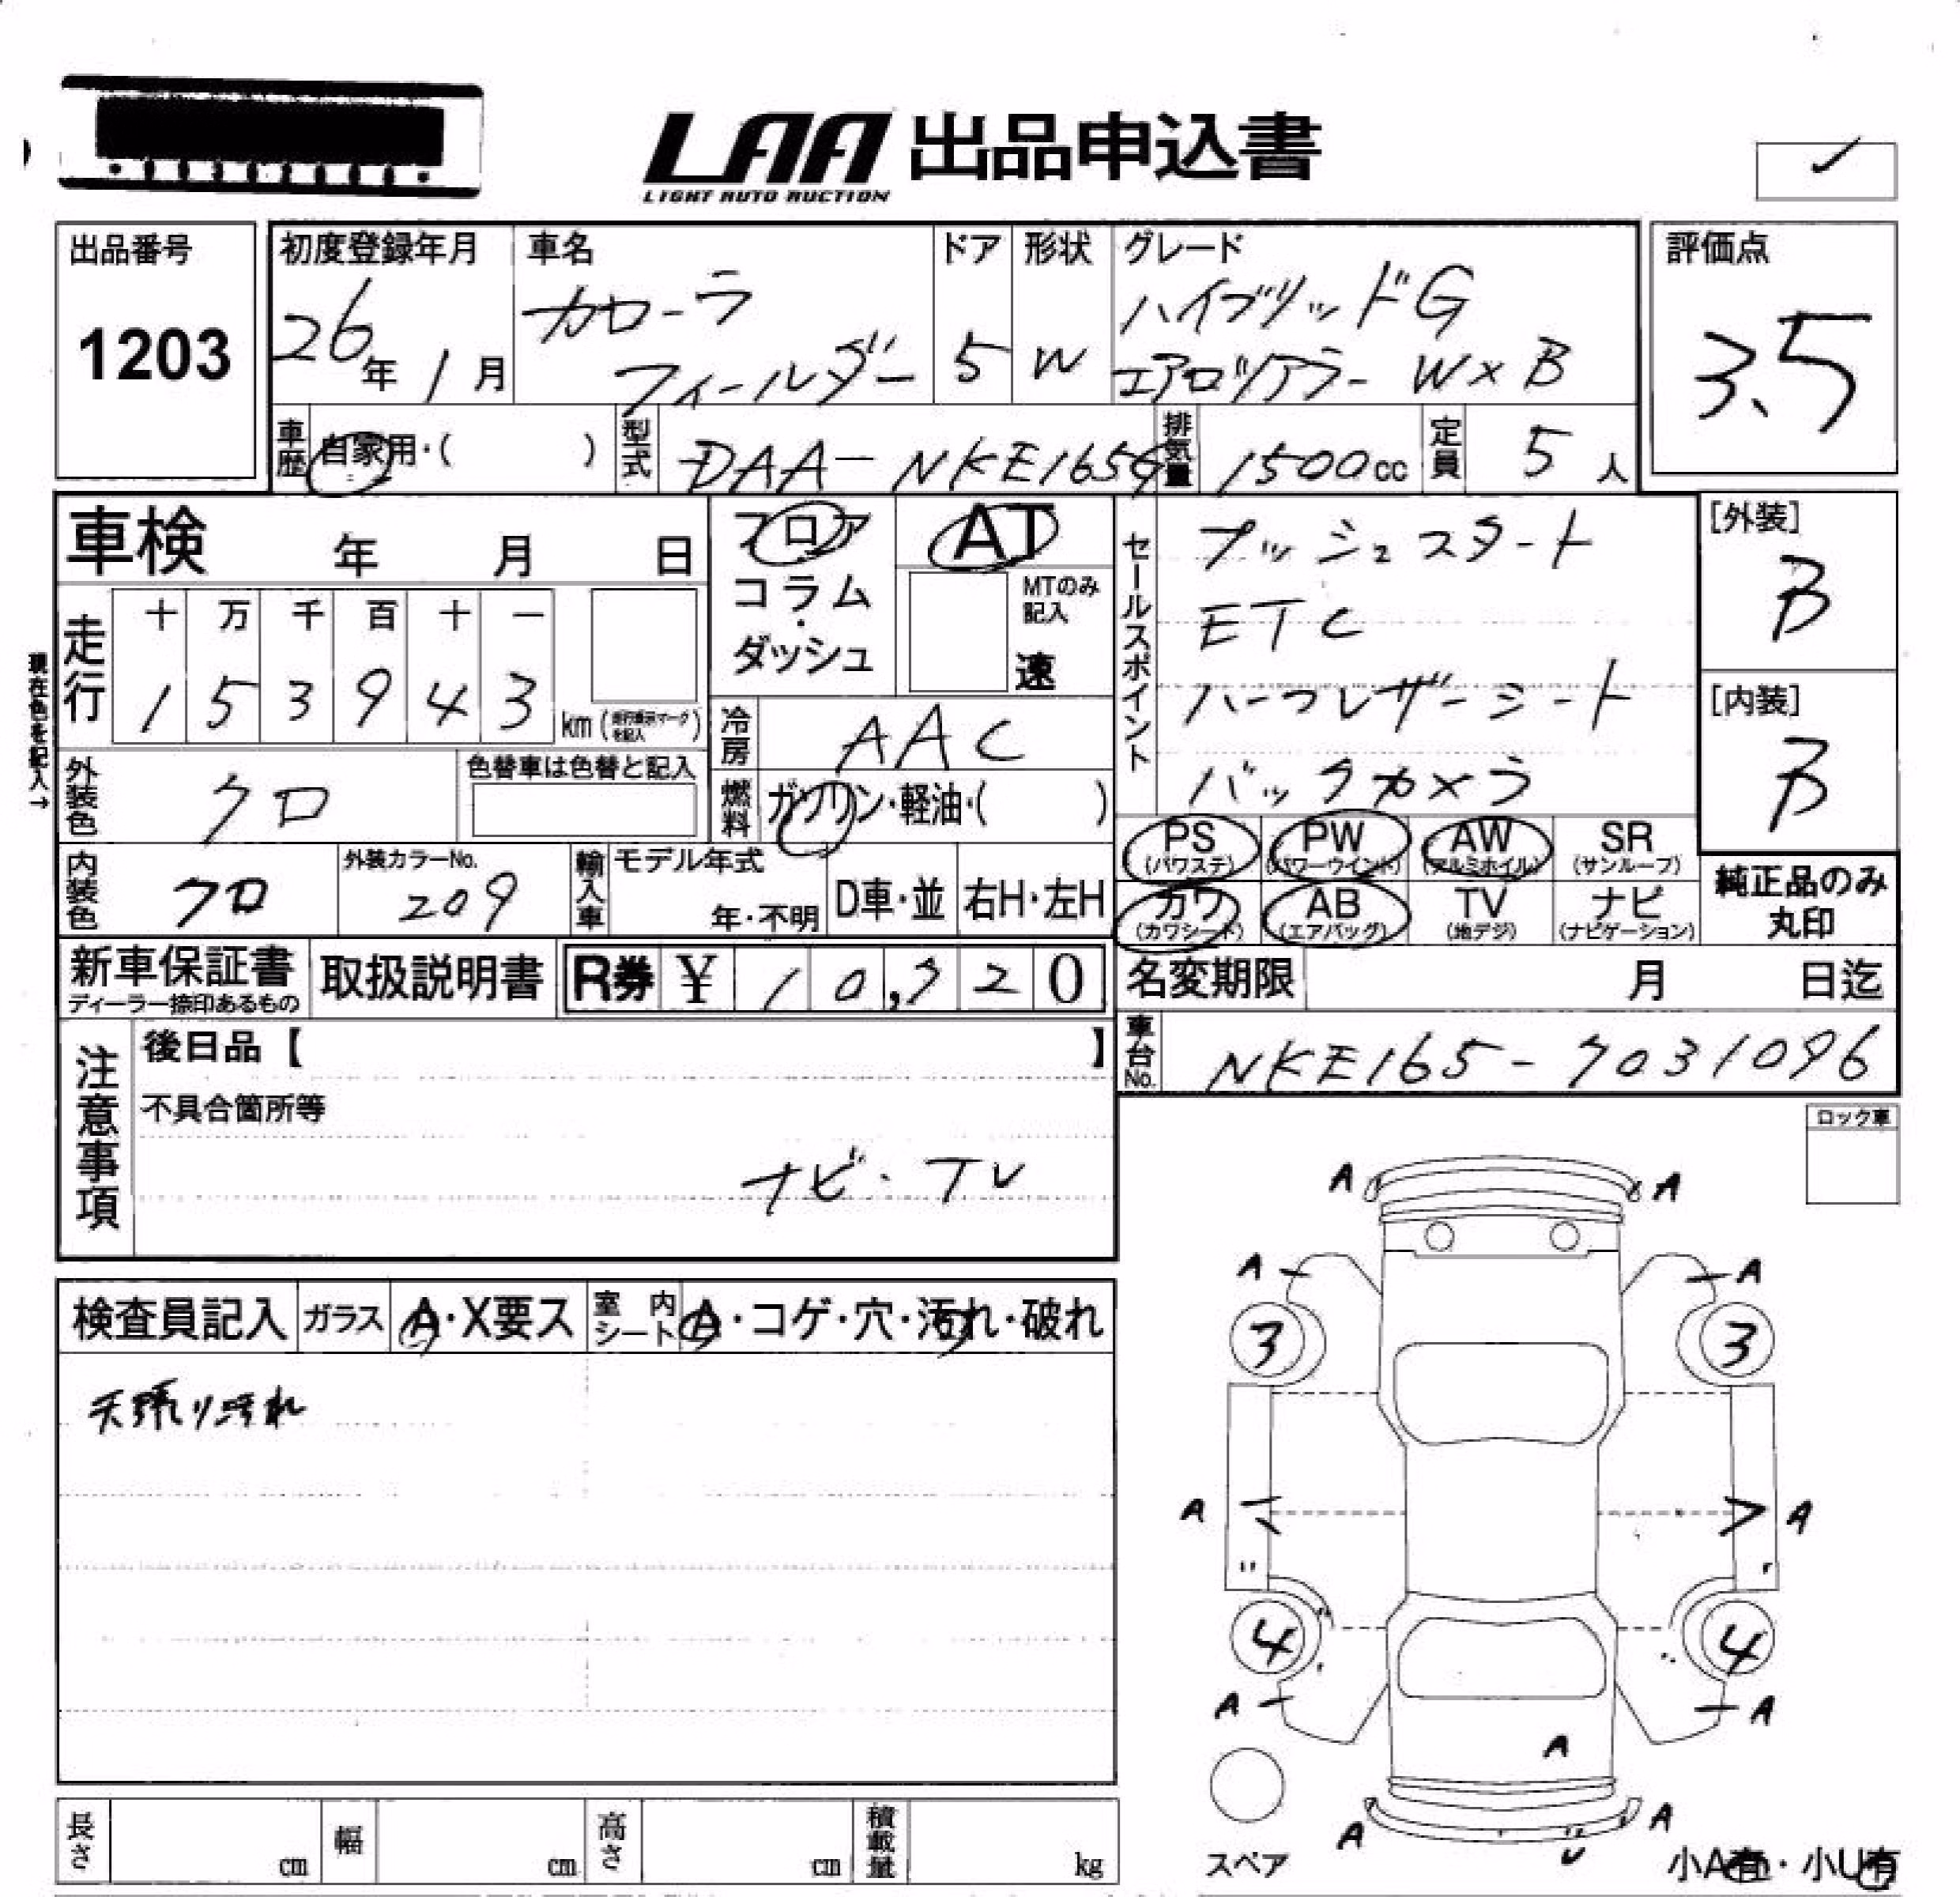 LAA 出品申込書
LIGHT AUTO AUCTION
出品番号
1203
初度登録年月
26年 1月
車名
カローラ
フィールダー
ドア
5
形状
W
グレード
ハイブリッドG
エアロツアラー W×B
評価点
3.5
車歴 自家用・( )
型式 DAA-NKE165G
排気量 1500cc
定員 5人
車検 年 月 日
フロア
コラム
・
ダッシュ
AT
MTのみ
記入
速
セールスポイント
プッシュスタート
ETC
ハーフレザーシート
バックカメラ
[外装]
B
[内装]
B
現在色を記入→
走行
十 万 千 百 十 一
1 5 3 9 4 3 km (走行表示マークを記入)
冷房 AAC
外装色 クロ
色替車は色替と記入
燃料 ガソリン・軽油・( )
PS (パワステ) PW (パワーウインド) AW (アルミホイル) SR (サンルーフ)
カワ (カワシート) AB (エアバッグ) TV (地デジ) ナビ (ナビゲーション)
純正品のみ
丸印
内装色 クロ
外装カラーNo.
209
輸入車
モデル年式
年・不明
D車・並
右H・左H
新車保証書
ディーラー捺印あるもの
取扱説明書
R券 ¥ 10,720
名変期限 月 日迄
車台No. NKE165-7031096
注意事項
後日品【 】
不具合箇所等
ナビ・TV
ロック車
検査員記入
ガラス A・X要ス
室内シート A・コゲ・穴・汚れ・破れ
天張り汚れ
A A
A A
3 3
A A
4 4
A A
A
A A
スペア
小A有・小U有
長さ cm
幅 cm
高さ cm
積載量 kg